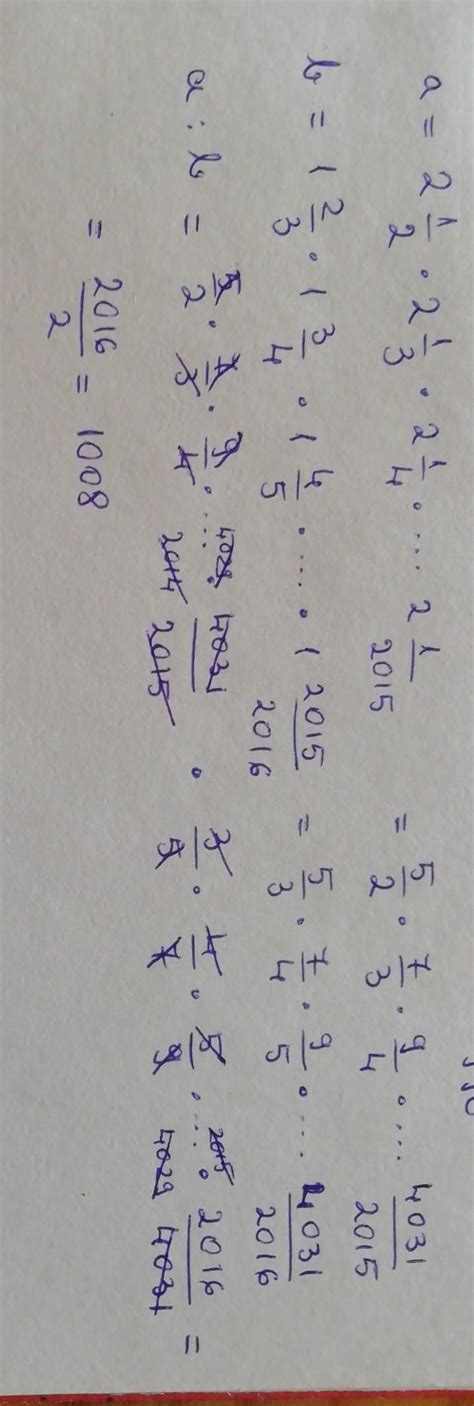 a = 2 1/2 · 2 1/3 · 2 1/4 · .... 2 1/2015 = 5/2 · 7/3 · 9/4 · .... 4031/2015
b = 1 2/3 · 1 3/4 · 1 4/5 · .... · 1 2015/2016 = 5/3 · 7/4 · 9/5 · .... 4031/2016
a : b = 5/2 · 7/3 · 9/4 · .... 4029/2014 · 4031/2015 · 3/5 · 4/7 · 5/9 · .... 2015/4029 · 2016/4031 =
= 2016/2 = 1008